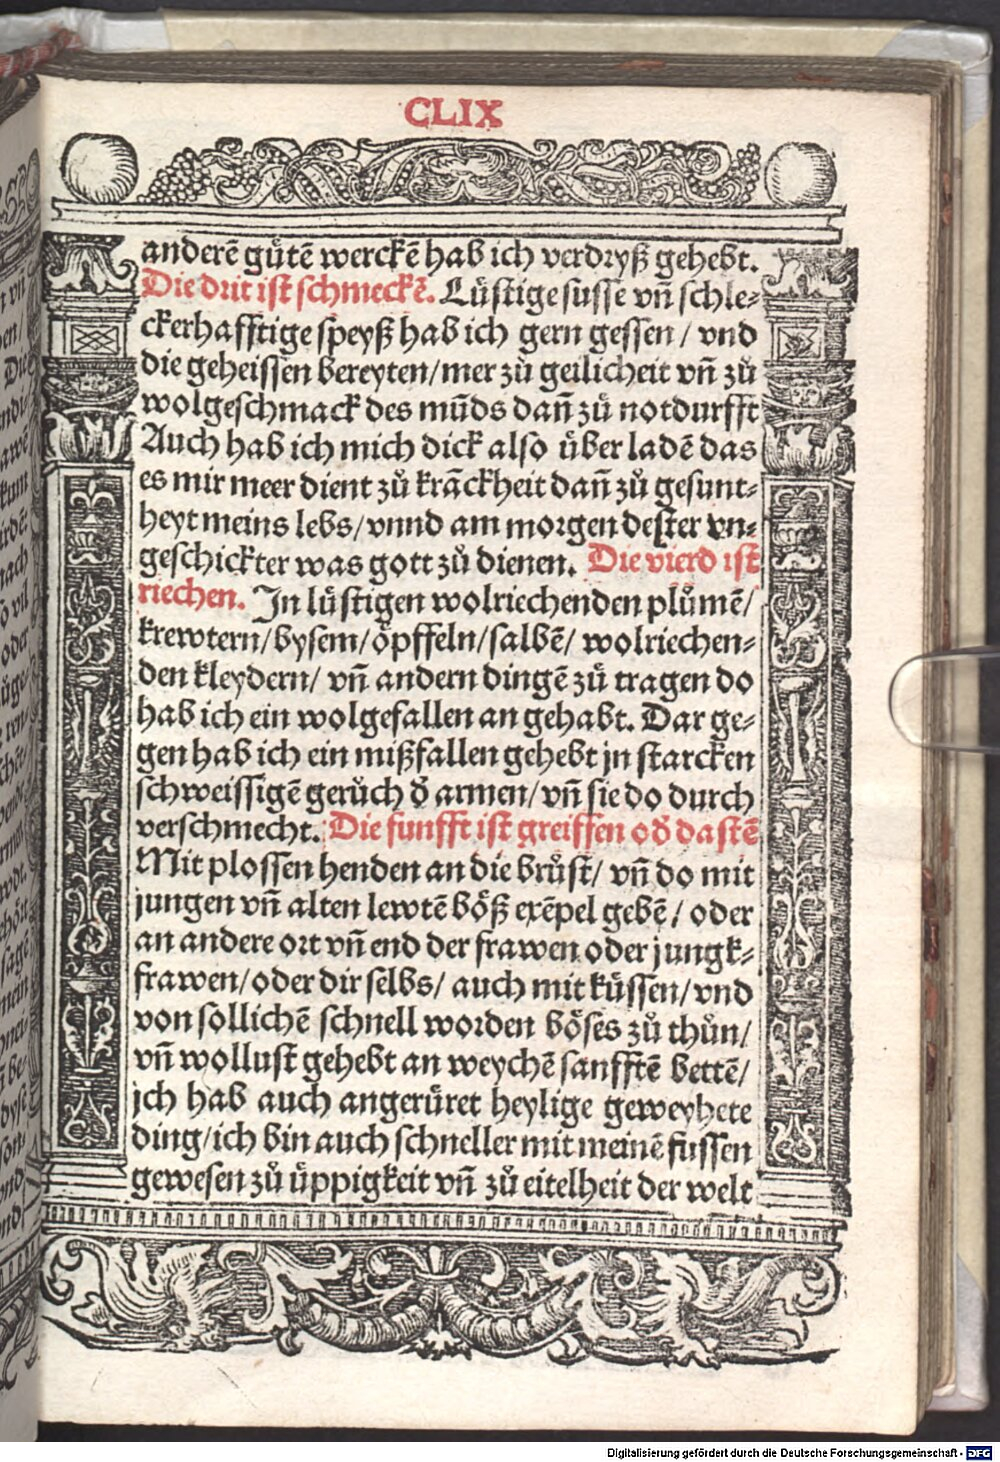 CLIX
anderẽ gůtẽ werckẽ hab ich verdryß gehebt.
Die drit ist schmeckẽ. Lüstige susse vñ schle⸗
ckerhafftige speyß hab ich gern gessen / vnd
die geheissen bereyten/mer zů geilicheit vñ zů
wolgeschmack des mũds dañ zů notdurfft
Auch hab ich mich dick also über ladẽ das
es mir meer dient zů krãckheit dañ zů gesunt⸗
heyt meins lebs/vnnd am morgen dester vn⸗
geschickter was gott zů dienen. Die vierd ist
riechen. In lüstigen wolriechenden plůmẽ/
krewtern/bysem/öpffeln/salbẽ/ wolriechen⸗
den kleydern/ vñ andern dingẽ zů tragen do
hab ich ein wolgefallen an gehabt. Dar ge⸗
gen hab ich ein mißfallen gehebt jn starcken
schweissigẽ gerůch d̕ armen/vñ sie do durch
verschmecht. Die funfft ist greiffen od̕ dastẽ
Mit plossen henden an die brüst/ vñ do mit
jungen vñ alten lewtẽ böß exẽpel gebẽ/ oder
an andere ort vñ end der frawen oder jungk⸗
frawen/oder dir selbs/ auch mit küssen/vnd
von sollichẽ schnell worden böses zů thůn/
vñ wollust gehebt an weychẽ sanfftẽ bettẽ/
jch hab auch angerüret heylige geweyhete
ding/ich bin auch schneller mit meinẽ fussen
gewesen zů üppigkeit vñ zů eitelheit der welt
Digitalisierung gefördert durch die Deutsche Forschungsgemeinschaft - DFG